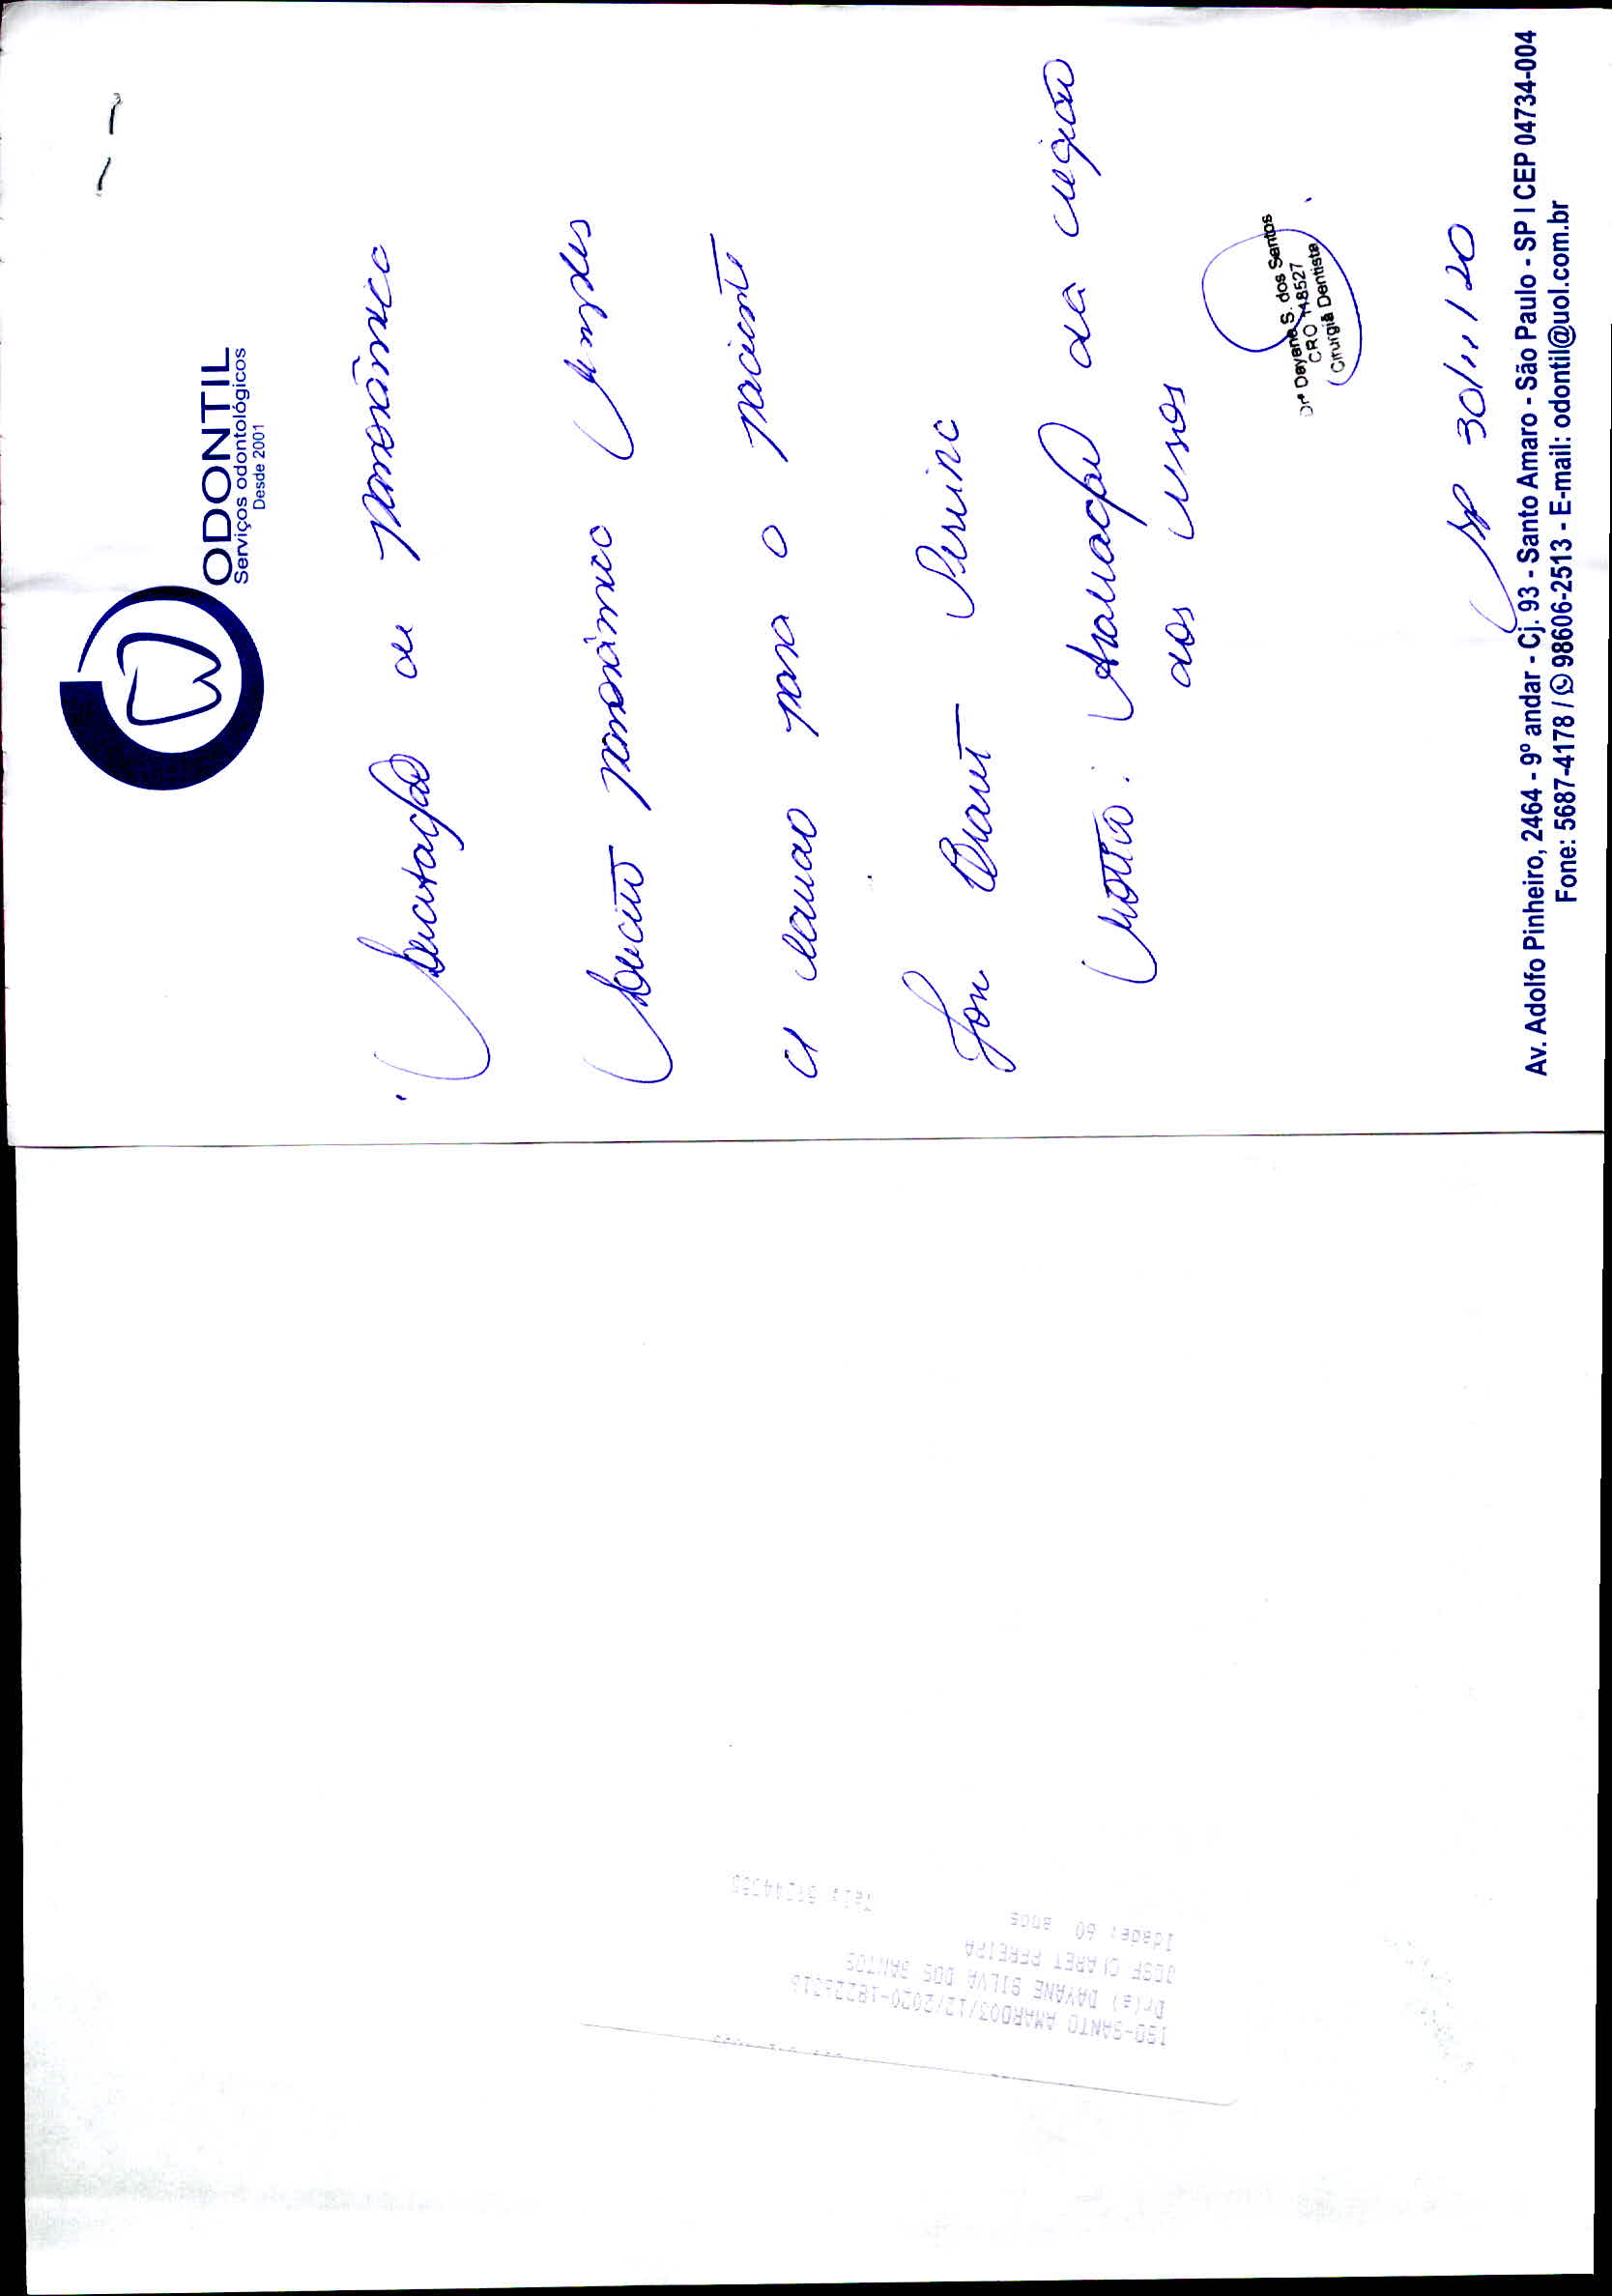 ODONTIL
Serviços odontológicos
Desde 2001
Solicitação de panorâmica
Solicito panorâmica simples
a laudo para o paciente
José Claret Pereira
motivo: Avaliação da região
dos sisos
Drª Dayane S. dos Santos
CRO 118527
Cirurgiã Dentista
SP 30/11/20
Av. Adolfo Pinheiro, 2464 - 9º andar - Cj. 93 - Santo Amaro - São Paulo - SP I CEP 04734-004
Fone: 5687-4178 / 98606-2513 - E-mail: odontil@uol.com.br
150-SANTO AMARO03/12/2020-
Dr(a) DAYANE SILVA DOS SANTOS
JOSE CLARET PEREIRA
Idade: 60 anos